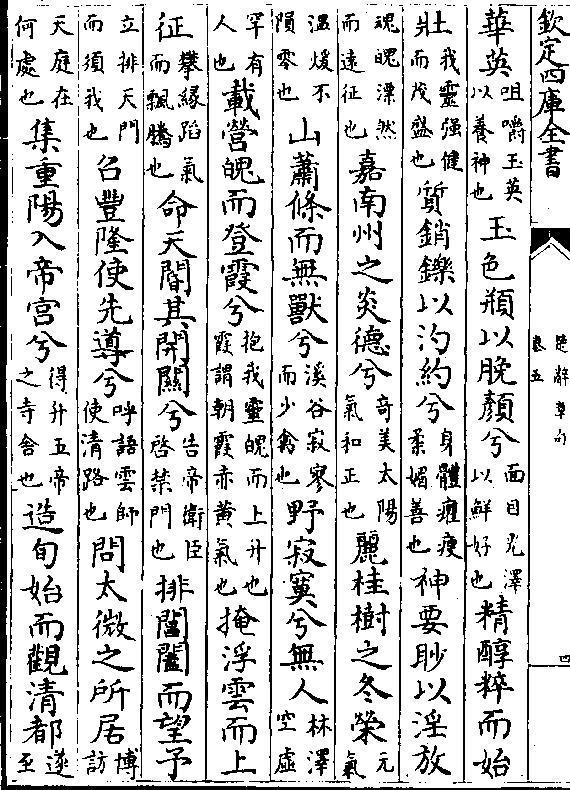 欽定四庫全書
楚辭章句
卷五
四
華英咀嚼玉英以養神也玉色頩以脕顏兮面目光澤以鮮好也精醇粹而始
壯我靈强健而茂盛也質銷鑠以汋約兮身體癯瘦柔媚善也神要眇以淫放
魂魄漂然而遠征也嘉南州之炎德兮奇美太陽氣和正也麗桂樹之冬榮元氣
溫煖不隕零也山蕭條而無獸兮溪谷寂寥而少禽也野寂寞兮無人林澤空虛
罕有人也載營魄而登霞兮抱我靈魄而上升也霞謂朝霞赤黃氣也掩浮雲而上
征攀緣蹈氣而飄騰也命天閽其開關兮告帝衛臣啓禁門也排閶闔而望予
立排天門而須我也召豐隆使先導兮呼語雲師使清路也問太微之所居博訪
天庭在何處也集重陽入帝宮兮得升五帝之寺舍也造旬始而觀清都遂至